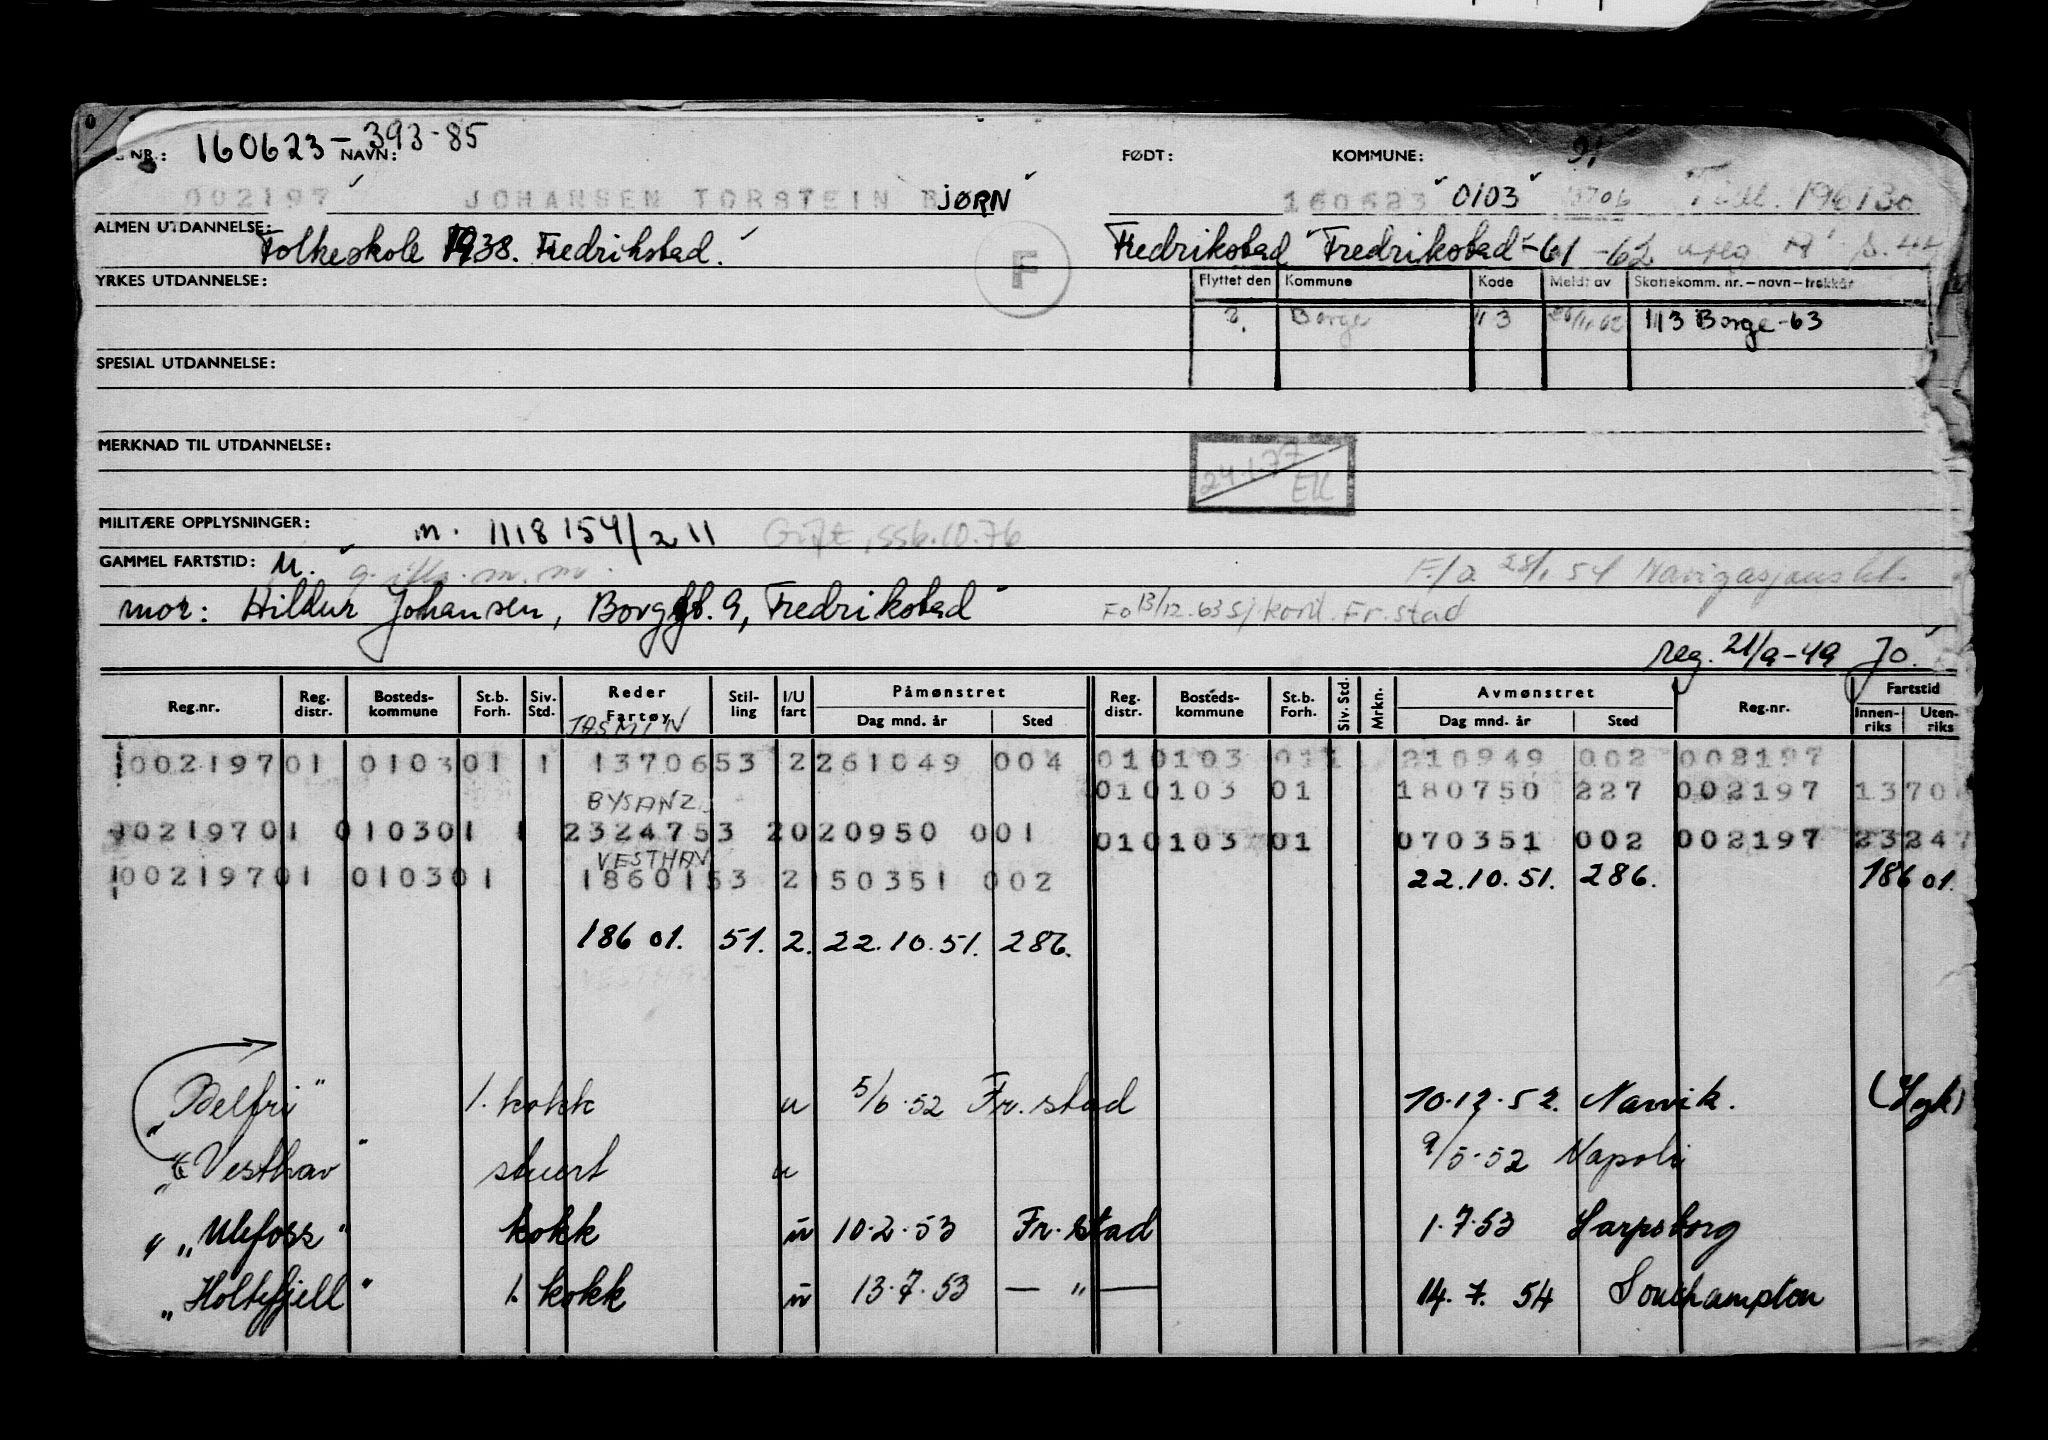 160623-393-85
NR.: NAVN: FØDT: KOMMUNE:
002197 JOHANSEN TORSTEIN BJØRN 160623 "0103" 13706 196130
ALMEN UTDANNELSE: Folkeskole 1938. Fredrikstad. F Fredrikstad Fredrikstad-61 -62
YRKES UTDANNELSE: Flyttet den Kommune Kode Meldt av Skattekomm. nr.-navn-trekkår
Borge 113 1113 Borge-63
SPESIAL UTDANNELSE:
MERKNAD TIL UTDANNELSE:
24.1.77 EK
MILITÆRE OPPLYSNINGER: m. 1118154/211 Gift, ssb.10.76
GAMMEL FARTSTID: u. F./a 28/1 54
mor: Hildur Johansen, Borggt. 9, Fredrikstad Fo 13/12.63 Sj.kont. Fr.stad
reg. 21/9-49 Jo.
Reg.nr. Reg. distr. Bosteds-kommune St.b. Forh. Siv. Std. Reder Fartøy Stilling I/U fart Påmønstret Dag mnd. år Sted Reg. distr. Bosteds-kommune St.b. Forh. Siv. Std. Mrkn. Avmønstret Dag mnd. år Sted Reg.nr. Fartstid Innen-riks Uten-riks
JASMIN
002197 01 0103 01 1 13706 53 2 261049 004 01 0103 01 1 210949 002 002197
BYSANZ 01 0103 01 180750 227 002197 1370
002197 01 0103 01 1 23247 53 2 020950 001 01 0103 01 070351 002 002197 23247
VESTHAV
002197 01 0103 01 18601 53 2 150351 002 22.10.51. 286. 18601.
18601. 51. 2. 22.10.51. 286.
VESTHAV
"Belfri" 1. kokk u 5/6.52 Fr.stad 10.12.52. Narvik. (Syk)
"Vesthav" stuert u 9/5-52 Napoli
"Ulefoss" kokk u 10.2.53 Fr.stad 1.7.53 Sarpsborg
"Holtefjell" 1. kokk u 13.7.53 — " — 14.7.54 Southampton